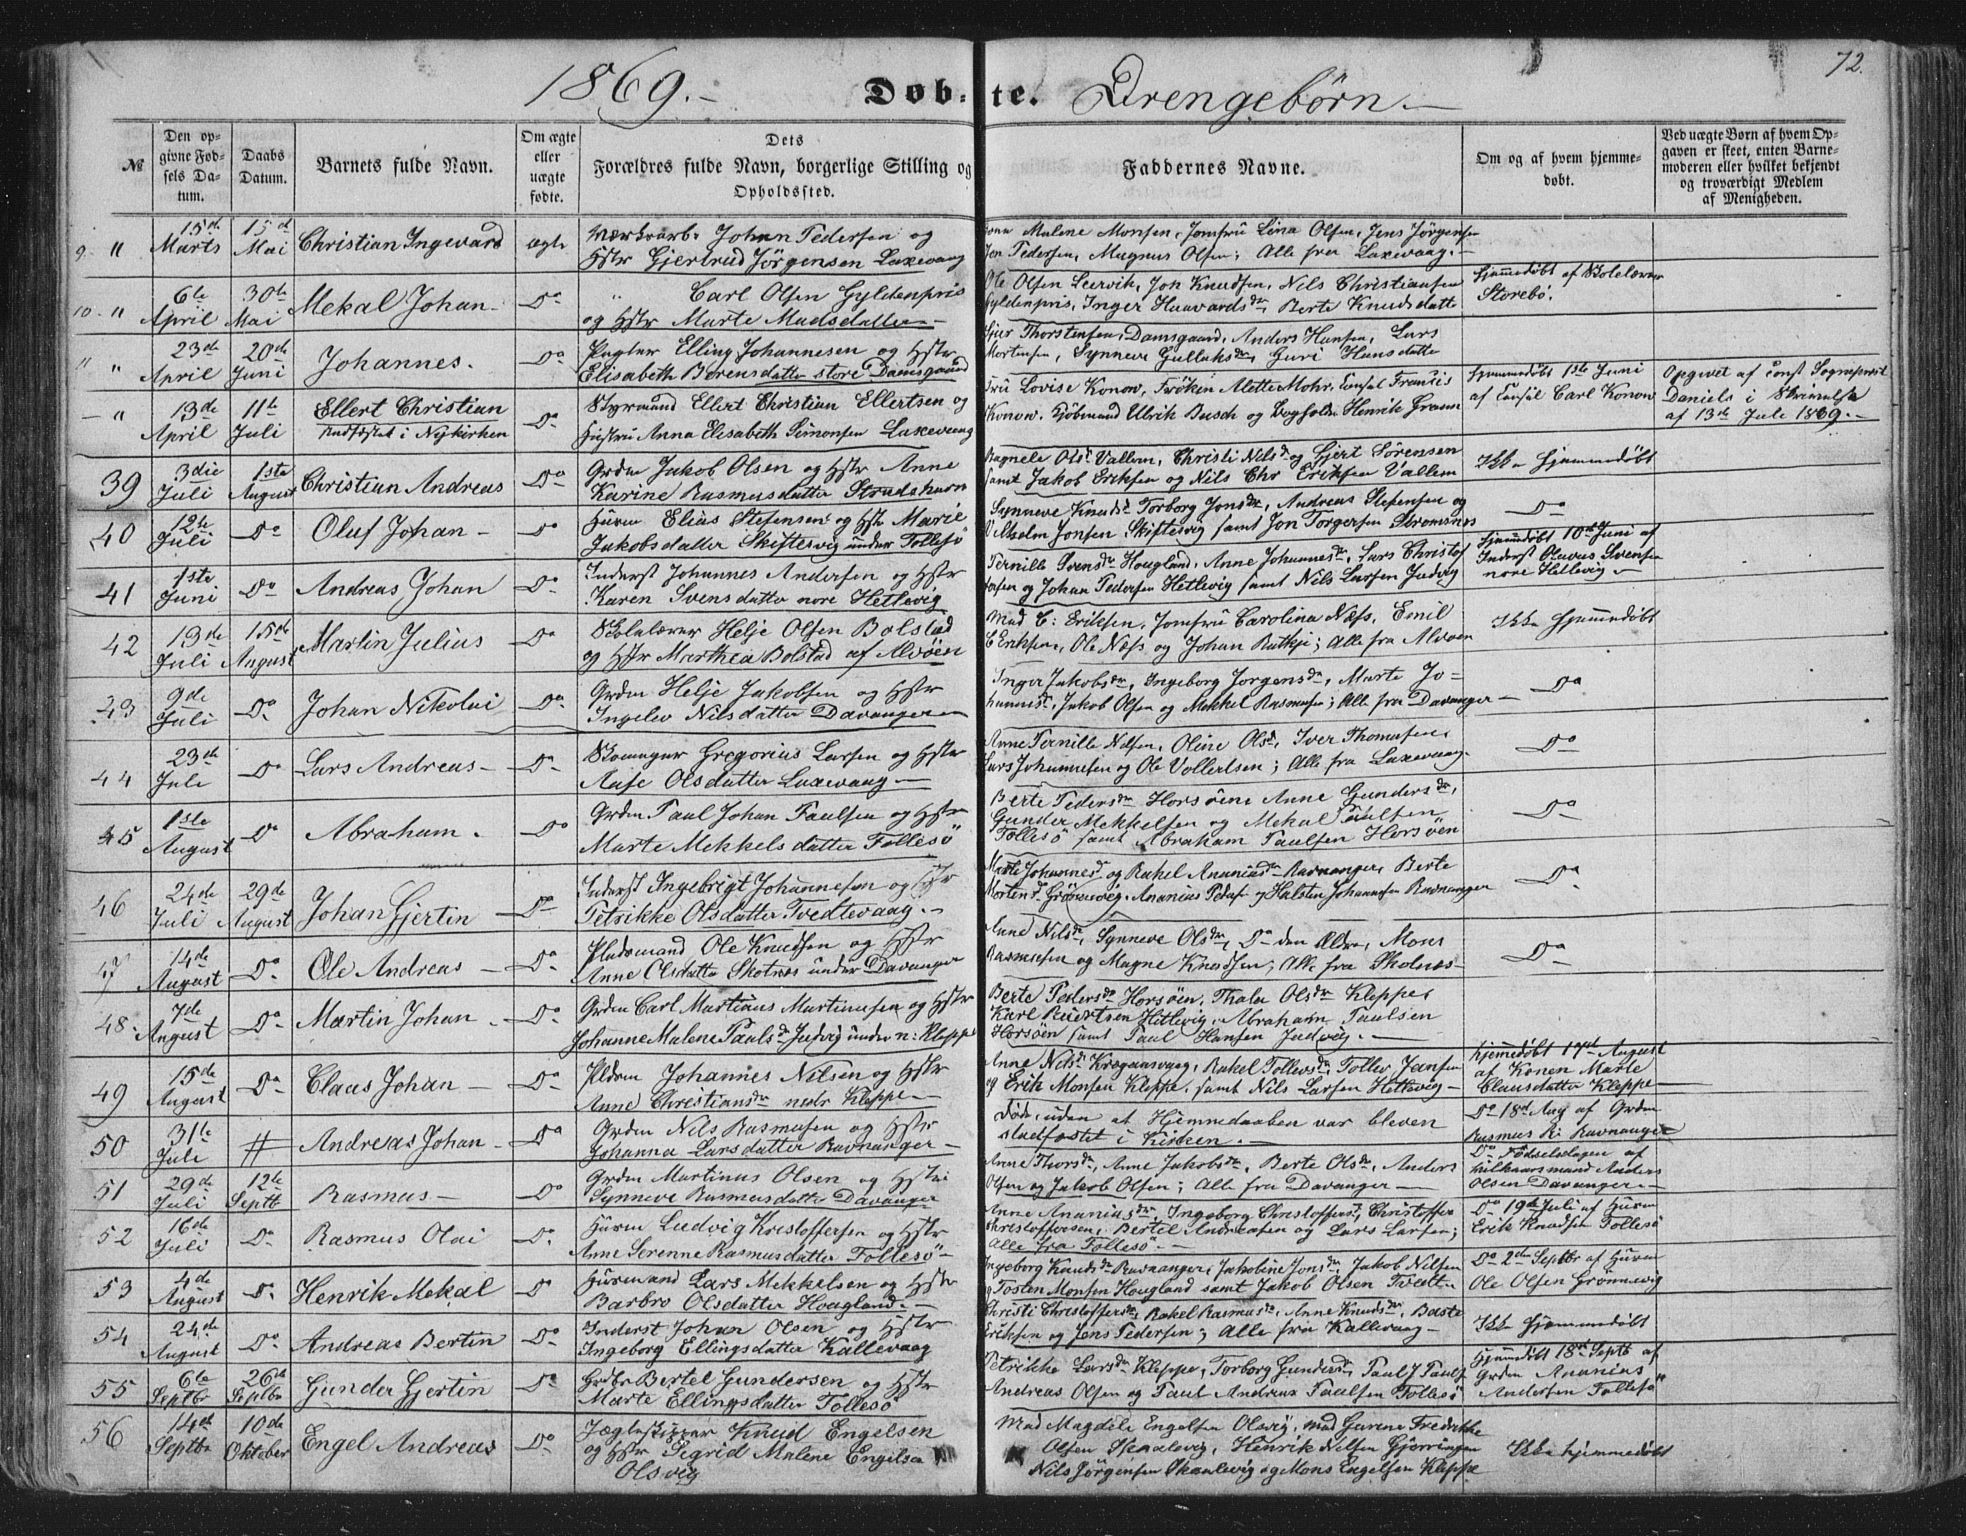 1869.- Døb-te. Drengebørn.- 72.
№
Den op-
givne Fød-
sels Da-
tum.
Daabs
Datum.
Barnets fulde Navn.
Om ægte
eller
uægte
fødte.
Dets
Forældres fulde Navn, borgerlige Stilling og
Opholdssted.
Faddernes Navne.
Om og af hvem hjemme-
døbt.
Ved uægte Børn af hvem Op-
gaven er skeet, enten Barne-
moderen eller hvilket bekjendt
og troværdigt Medlem
af Menigheden.
9. " 15de Marts 15de Mai Christian Ingevard ægte
Johan Pedersen og
Hstr Gjertrud Jørgensen Laxevaag
Malene Monsen, Jomfru Lina Olsen, Jens Jørgensen
Jon Pedersen, Magnus Olsen; Alle fra Laxevaag.-
10. " 6te April 30te Mai Mekal Johan Do
" Carl Olsen Gyldenpris
og Hstr Marte Madsdatter
Ole Olsen Leervik, Jon Knudsen, Nils Christiansen
Gyldenpris, Inger Haavardsdr, Berte Knudsdatter
Hjemmedøbt af Skolelærer
Storebø.
" " 23de April 20de Juni Johannes. Do
Elling Johannesen og Hstr
Elisabeth Berensdatter store Damsgaard
Sjur Thorstensen, Damsgaard, Anders Hansen, Lars
Mortensen, Synneve Gullaksdr, Guri Hansdatter
- " 13de April 11te Juli Ellert Christian Do
Stadfæstet i Nykirken
Styrmand Ellert Christian Ellertsen og
Hustru Anna Elisabeth Simonsen Laxevaag
Fru Lovise Konow, Frøken Alette Mohr, Consul Francis
Konow, Kjøbmand Ullrik Busch og Bogholder Henrik
Hjemmedøbt 1ste Juni
af Consul Carl Konow
Opgivet af const Sogneprest
Daniels i
af 13de Juli 1869.-
39 3die Juli 1ste August Christian Andreas Do
Grdm Jakob Olsen og Hstr Anne
Karine Rasmusdatter Strudshavn
Ragnele Olsdr Vallem, Christi Nilsdr og Gjert Sørensen
samt Jakob Eriksen og Nils Chr Eriksen Vallem
Ikke hjemmedøbt
40 12te Juli Do Oluf Johan - Do
Huusm Elias Stefensen og Hstr Marie
Jakobsdatter Skiftesvig under Follesø
Synneve Knudsdr Torborg Jonsdr, Andreas Stefensen og
Vilhelm Jonsen Skiftesvig samt Jon Torgersen Stromsnes
Do
41 1ste Juni Do Andreas Johan Do
Inderst Johannes Andersen og Hstr
Karen Svensdatter nore Hetlevig
Pernille Svensdr Hougland, Anne Johannesdr, Lars Christof
fersen og Johan Pedersen Hetlevig samt Nils Larsen Judvig
Hjemmedøbt 10de Juni af
Inderst Olavus Svensen
nore Hetlevig -
42 19de Juli 15de August Martin Julius Do
Skolelærer Helje Olsen Bolstad
og Hstr Marthea Bolstad af Alvøen
Mad C: Eriksen, Jomfru Carolina Næss, Emil
C Eriksen, Ole Næss og Johan Rutkje; Alle fra Alvøen
Ikke hjemmedøbt
43 9de Juli Do Johan Nikolai Do
Grdm Helje Jakobsen og Hstr
Ingelev Nilsdatter Davanger
Inger Jakobsdr, Ingeborg Jørgensdr, Marte Jo-
hannesdr, Jakob Olsen og Mekkel Rasmusen; Alle fra Davanger
Do
44 23de Juli Do Lars Andreas Do
Skomager Gregorius Larsen og Hstr
Aase Olsdatter Laxevaag
Anne Pernille Nelsen, Oline Olsdr, Iver Thomasen,
Lars Johannesen og Ole Vollertsen; Alle fra Laxevaag.
Do
45 1ste August Do Abraham. Do
Grdm Paul Johan Paulsen og Hstr
Marte Mekkelsdatter Follesø
Berte Pedersdr Horsøen Anne Gundersdr,
Gunder Mekkelsen og Mekal Paulsen
Follesø samt Abraham Paulsen Horsøen
Do
46 24de Juli 29de August Johan Gjertin Do
Inderst Ingebrigt Johannesen og Hstr
Petrikke Olsdatter Tvedtevaag.-
Marte Johannesdr og Rakel Ananiasdr Ravnanger, Berte
Mortensdr Grønevig, Ananias Peders og Halsten Johannesen Ravnanger
Do
47 14de August Do Ole Andreas Do
Pladsmand Ole Knudsen og Hstr
Anne Olsdatter Skotnes under Davanger
Anne Nilsdr, Synneve Olsdr, Do den Ældre, Mons
Rasmusen og Magne Knudsen; Alle fra Skotnes
Do
48. 7de August Do Martin Johan Do
Grdm Carl Martinus Martinusen og Hstr
Johanne Malene Paulsdr Judvig under n: Kleppe
Berte Pedersdr Horsøen, Thala Olsdr Kleppe,
Karl Hetlevig, Abraham Paulsen
Horsøen samt Paul Hansen Judvig.-
49 15de August Do Claus Johan - Do
Johannes Nilsen og Hstr
Anne Christiansdr nedr Kleppe
Anne Nilsdr Kroganvaag, Rakel Tollevsdr, Tollev Jansen
og Erik Monsen Kleppe, samt Nils Larsen Hetlevig
hjemmedøbt 17de August
af Konen Marte
Clausdatter Kleppe
50 31te Juli # Andreas Johan Do
Grdm Nils Rasmusen og Hstr
Johanna Larsdatter Ravnanger
Døde, uden at Hjemmedaaben var bleven
stadfæstet i Kirken.-
Do 18de Aug af Grdm
Rasmus R: Ravnanger
51 29de Juli 12te Septb Rasmus Do
Grdm Martinus Olsen og Hstr
Synneve Rasmusdatter Davanger
Anne Thorsdr, Anne Jakobsdr, Berte Olsdr, Anders
Olsen og Jakob Olsen; Alle fra Davanger
Do Fødselsdagen af
Kilkaarsmand Anders
Olsen Davanger
52 16de Juli Do Rasmus Olai Do
Huusm Ludvig Kristoffersen og Hstr
Anne Serenne Rasmusdatter Follesø
Anne Ananiasdr, Ingeborg Christoffersdr, Christoffer
Christoffersen, Bertel Andreasen og Lars Larsen;
Alle fra Follesø.-
Do 19de Juli af Huusm
Erik Knudsen Follesø
53 4de August Do Henrik Mekal Do
Huusmand Lars Mekkelsen og Hstr
Barbro Olsdatter Hougland.-
Ingeborg Knudsdr Ravnanger, Jakobine Jonsdr, Jakob Nilsen
og Tosten Monsen Hougland samt Jakob Olsen Tvedt
Do 2den Septbr af Huusm
Ole Olsen Grønnevig
54 24de August Do Andreas Bertin Do
Inderst Johan Olsen og Hstr
Ingeborg Ellingsdatter Kallevaag
Christi Christoffersdr, Rakel Rasmusdr, Anne Knudsdr, Baste
Eriksen og Jens Pedersen; Alle fra Kallevaag
Ikke hjemmedøbt
55 6te Septbr 26de Septbr Gunder Gjertin Do
Bertel Gundersen og Hstr
Marte Ellingsdatter Follesø
Petrikke Larsdr Kleppe, Torborg Gundersdr, Paul J Pauls
Andreas Olsen og Paul Andreas Paulsen Follesø
Hjemmedøbt 18de Septb af
Grdm Ananias
Andersen Follesø
56 14de Septbr 10de Oktober Engel Andreas Do
Jægteskipper Knud Engelsen
og Hstr Sigrid Malene Engelsen
Olsvig
Mad Magdele Engelsen Olsvig, Mad Gurine Fredrikke
Olsen Skaalevig, Henrik Nilsen Gjerringen
Nils Jörgensen Skaalevig og Mons Engelsen Kleppe
Ikke hjemmedøbt